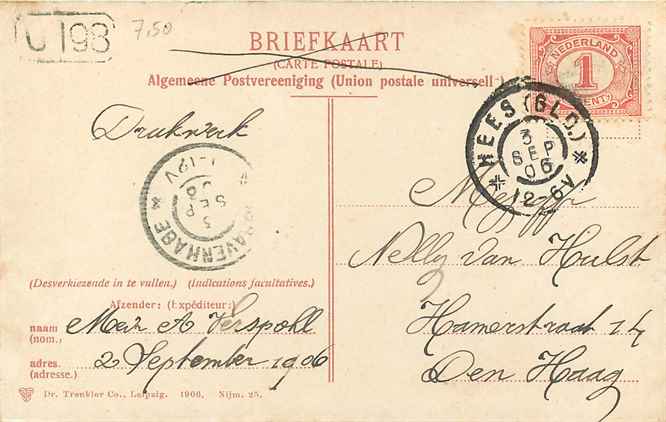 U 198
7,50
BRIEFKAART
(CARTE POSTALE)
Algemeene Postvereeniging (Union postale universelle)
NEDERLAND
1
CENT
HEES (GLD.)
3
SEP
06
12-6V
Drukwerk
'S GRAVENHAGE
3
SEP
06
1-12V
Mejuffr
Nelly van Hulst
Hamerstraat 14
Den Haag
(Desverkiezende in te vullen.) (Indications facultatives.)
Afzender: (Expéditeur:)
naam (nom.) Mej. A Verspohl
adres. (adresse.) 2 September 1906
Dr. Trenkler Co., Leipzig. 1906. Nijm. 25.